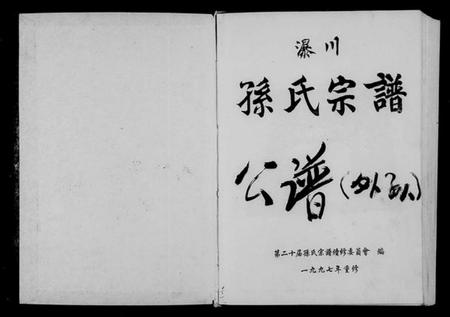 瀑川
孫氏宗譜
公谱
第二十届孫氏宗譜續修委員會 編
一九九七年重修